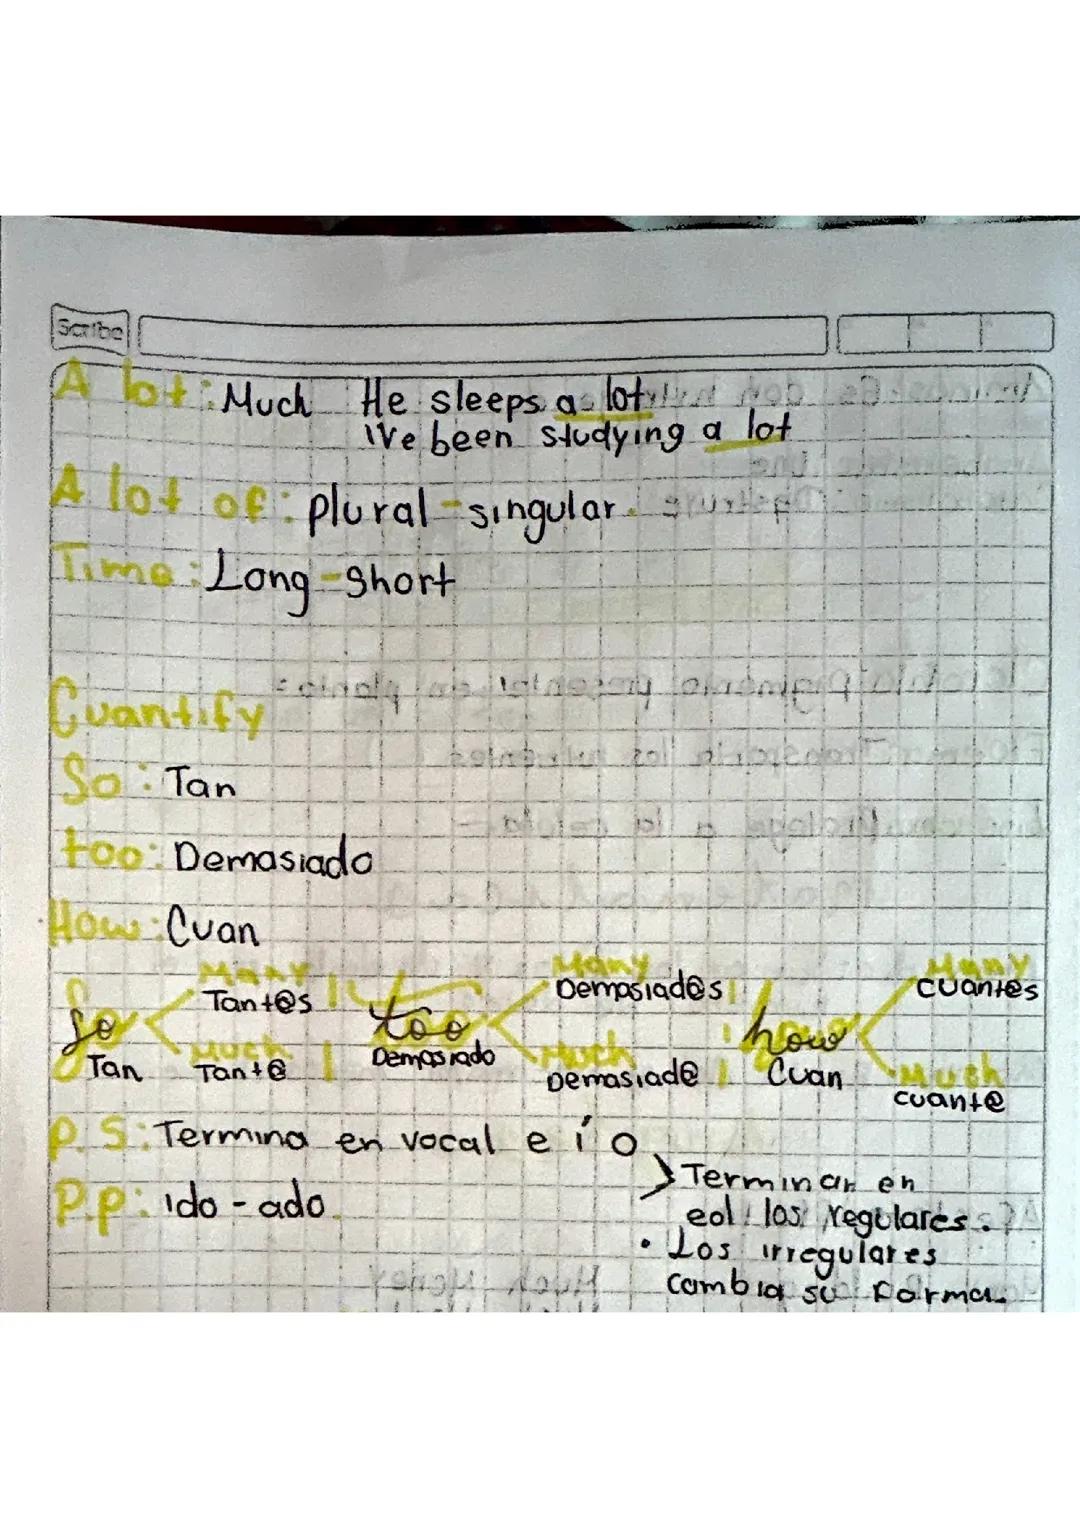 Scribe
A lot: Much He sleeps a lot
I've been studying a lot
A lot of: plural - singular.
Time: Long - Short
Cuantify
So: Tan
too: Demasiado
How: Cuan
So Tan
Many Tant@s
Much Tant@
too Demasiado
Many Demasiad@s
Much Demasiad@
how Cuan
Many cuant@s
Much cuant@
P.S: Termina en vocal e í o
P.p: ido - ado.
> Terminar en
los regulares.
• Los irregulares
cambia su forma.